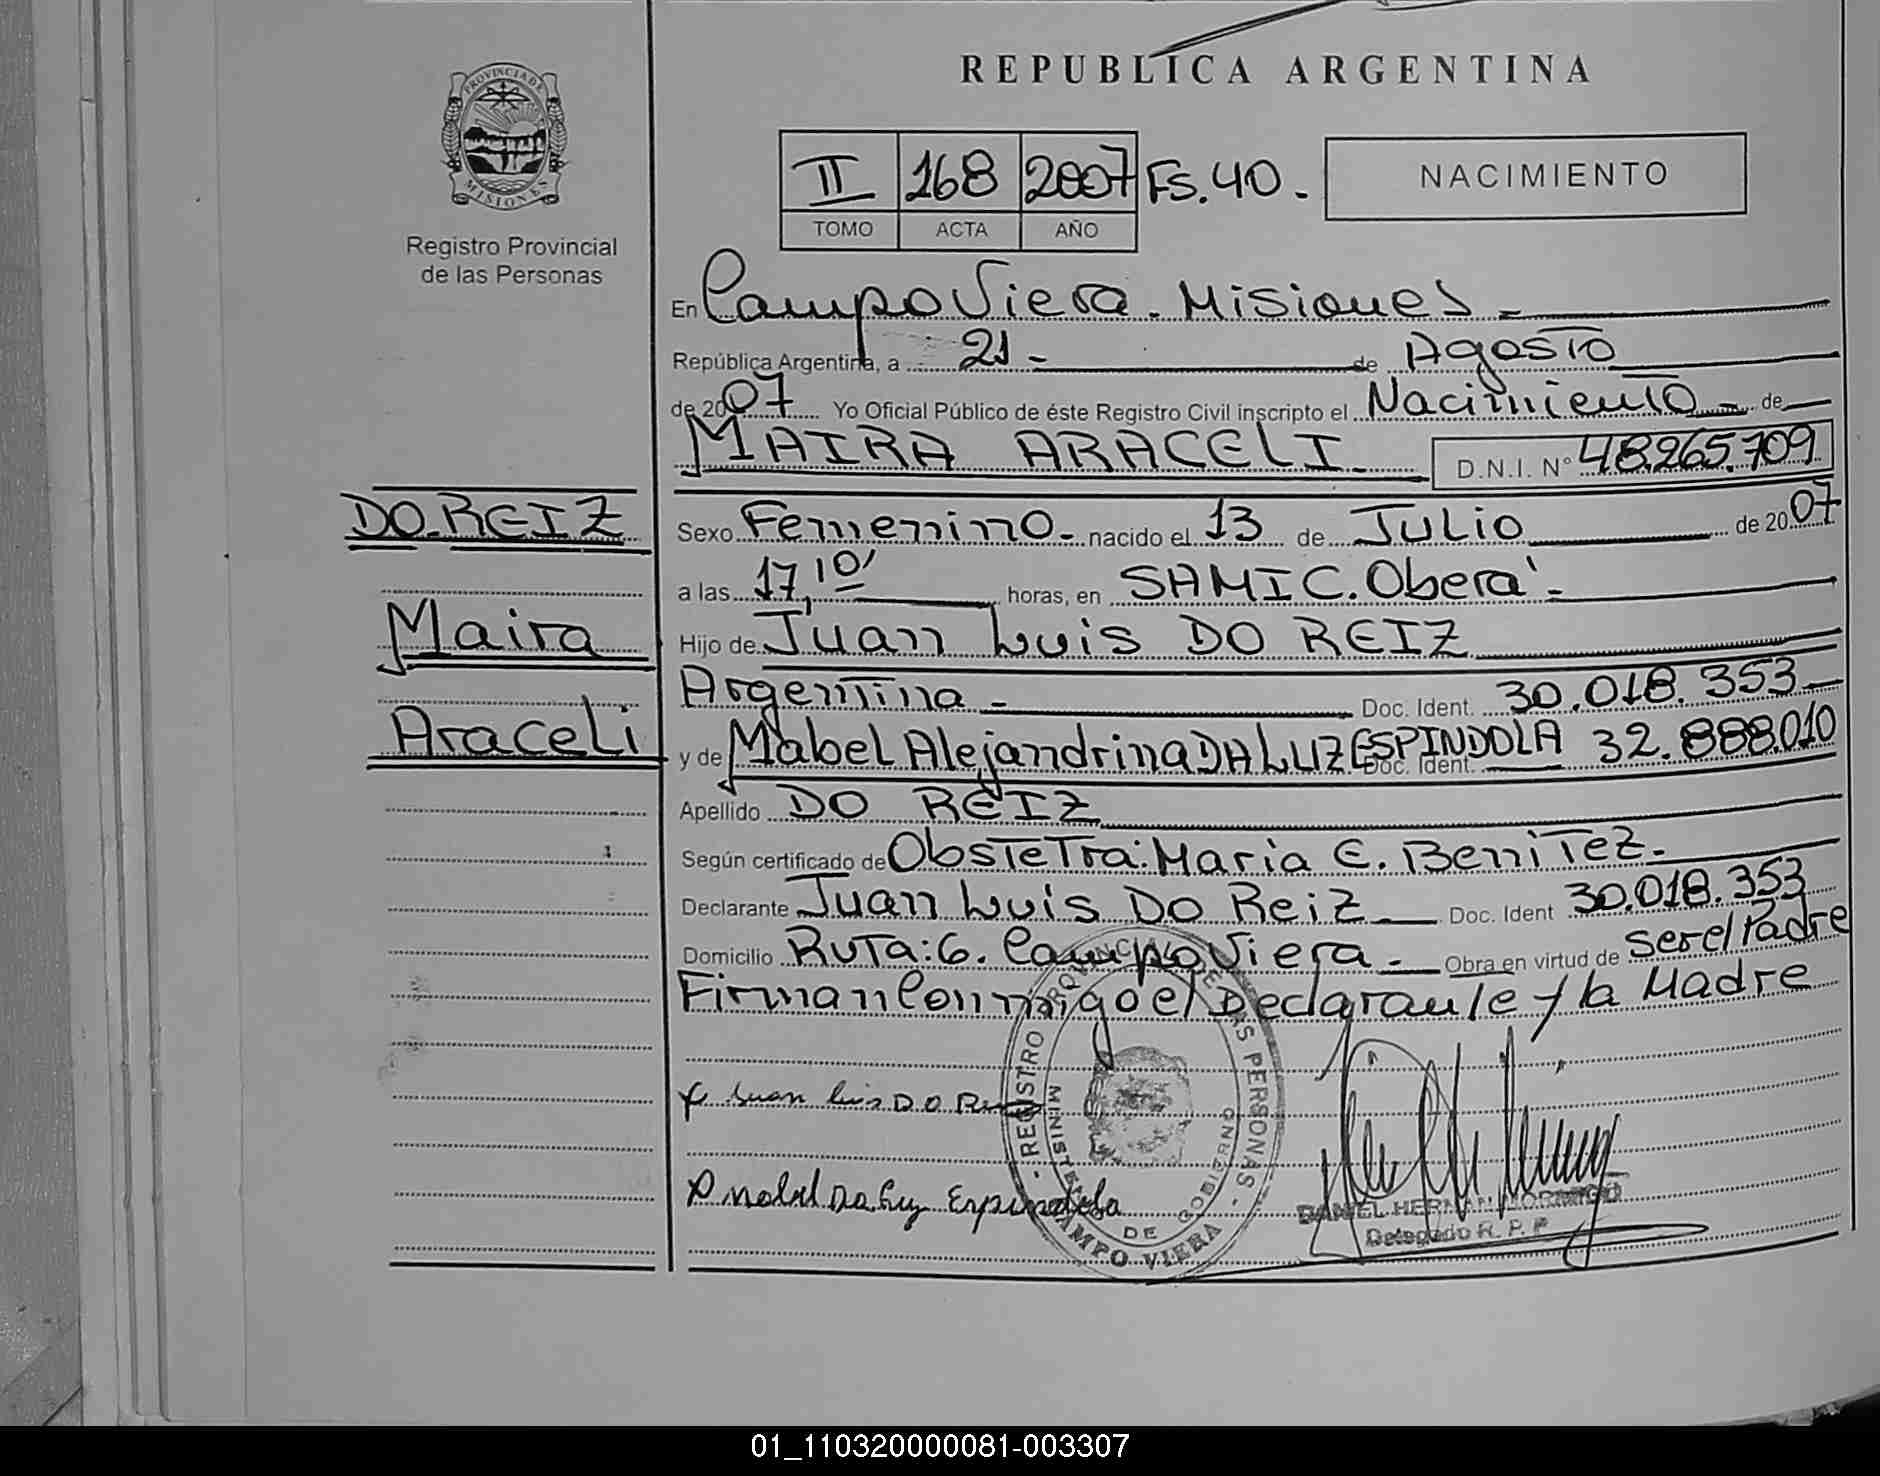 REPUBLICA ARGENTINA
PROVINCIA DE
MISIONES
Registro Provincial
de las Personas
II 168 2007 FS. 40.
TOMO ACTA AÑO
NACIMIENTO
En Campo Viera. Misiones
República Argentina, a 21 de Agosto
de 2007 Yo Oficial Público de éste Registro Civil inscripto el Nacimiento de
MAIRA ARACELI D.N.I. N° 48.265.709
DO REIZ
Maira
Araceli
Sexo Femenino nacido el 13 de Julio de 2007
a las 17,10' horas, en SAMIC. Oberá
Hijo de Juan Luis DO REIZ
Argentina Doc. Ident. 30.018.353
y de Mabel Alejandrina DA LUZ ESPINDOLA Doc. Ident. 32.888.010
Apellido DO REIZ
Según certificado de Obstetra: Maria E. Benitez.
Declarante Juan Luis DO Reiz Doc. Ident 30.018.353
Domicilio Ruta: 6. Campo Viera Obra en virtud de ser el Padre
Firman Conmigo el Declarante y la Madre
Juan Luis DO
Da Luz Espindola
REGISTRO PROVINCIAL DE LAS PERSONAS
MINISTERIO DE GOBIERNO
CAMPO VIERA
DANIEL HERNAN MORINIGO
Delegado R. P. P.
01_110320000081-003307